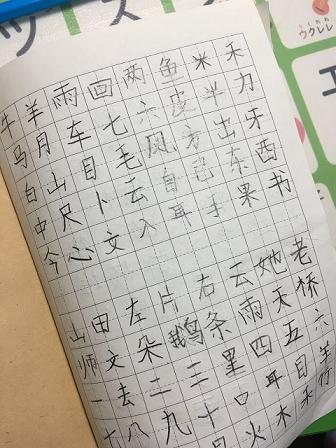 牛羊雨画两鱼米禾
马月车七六皮半力
白山目毛风方出牙
中尺卜云自己东西
今心文入耳手果书
山田左片右云她老
师文朵鹅条雨天桥
一去二三里四五六
七八九十口耳目
火木禾
ウクレレ